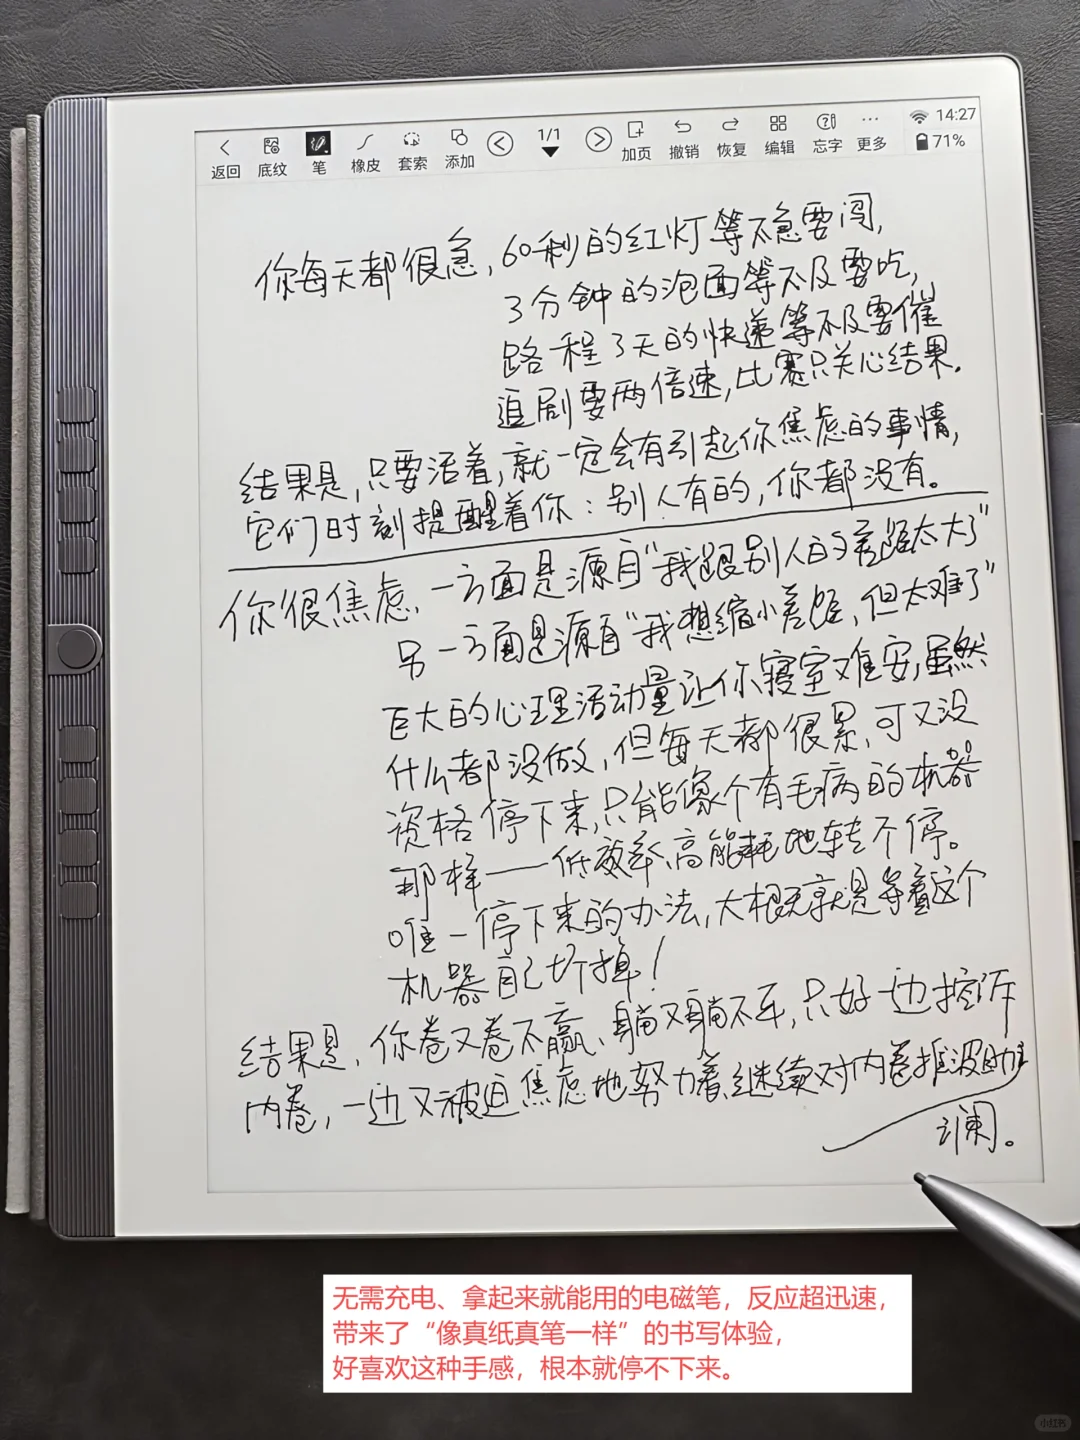 返回 底纹 笔 橡皮 套索 添加 1/1 加页 撤销 恢复 编辑 忘字 更多 14:27 71%
你每天都很急,60秒的红灯等不急要闯,
3分钟的泡面等不及要吃,
路程3天的快递等不及要催
追剧要两倍速,比赛只关心结果.
结果是,只要活着,就一定会有引起你焦虑的事情,
它们时刻提醒着你:别人有的,你都没有。
你很焦虑,一方面是源自“我跟别人的差距太大了”
另一方面是源自“我想缩小差距,但太难了”
巨大的心理活动量让你寝室难安,虽然
什么都没做,但每天都很累,可又没
资格停下来,只能像个有毛病的机器
那样——低效率、高能耗地转个停。
唯一停下来的办法,大概就是等着这个
机器自己坏掉!
结果是,你卷又卷不赢、躺又躺不平,只好一边控诉
内卷,一边又被迫焦虑地努力着,继续对内卷推波助
澜。
无需充电、拿起来就能用的电磁笔，反应超迅速，
带来了“像真纸真笔一样”的书写体验，
好喜欢这种手感，根本就停不下来。
小红书